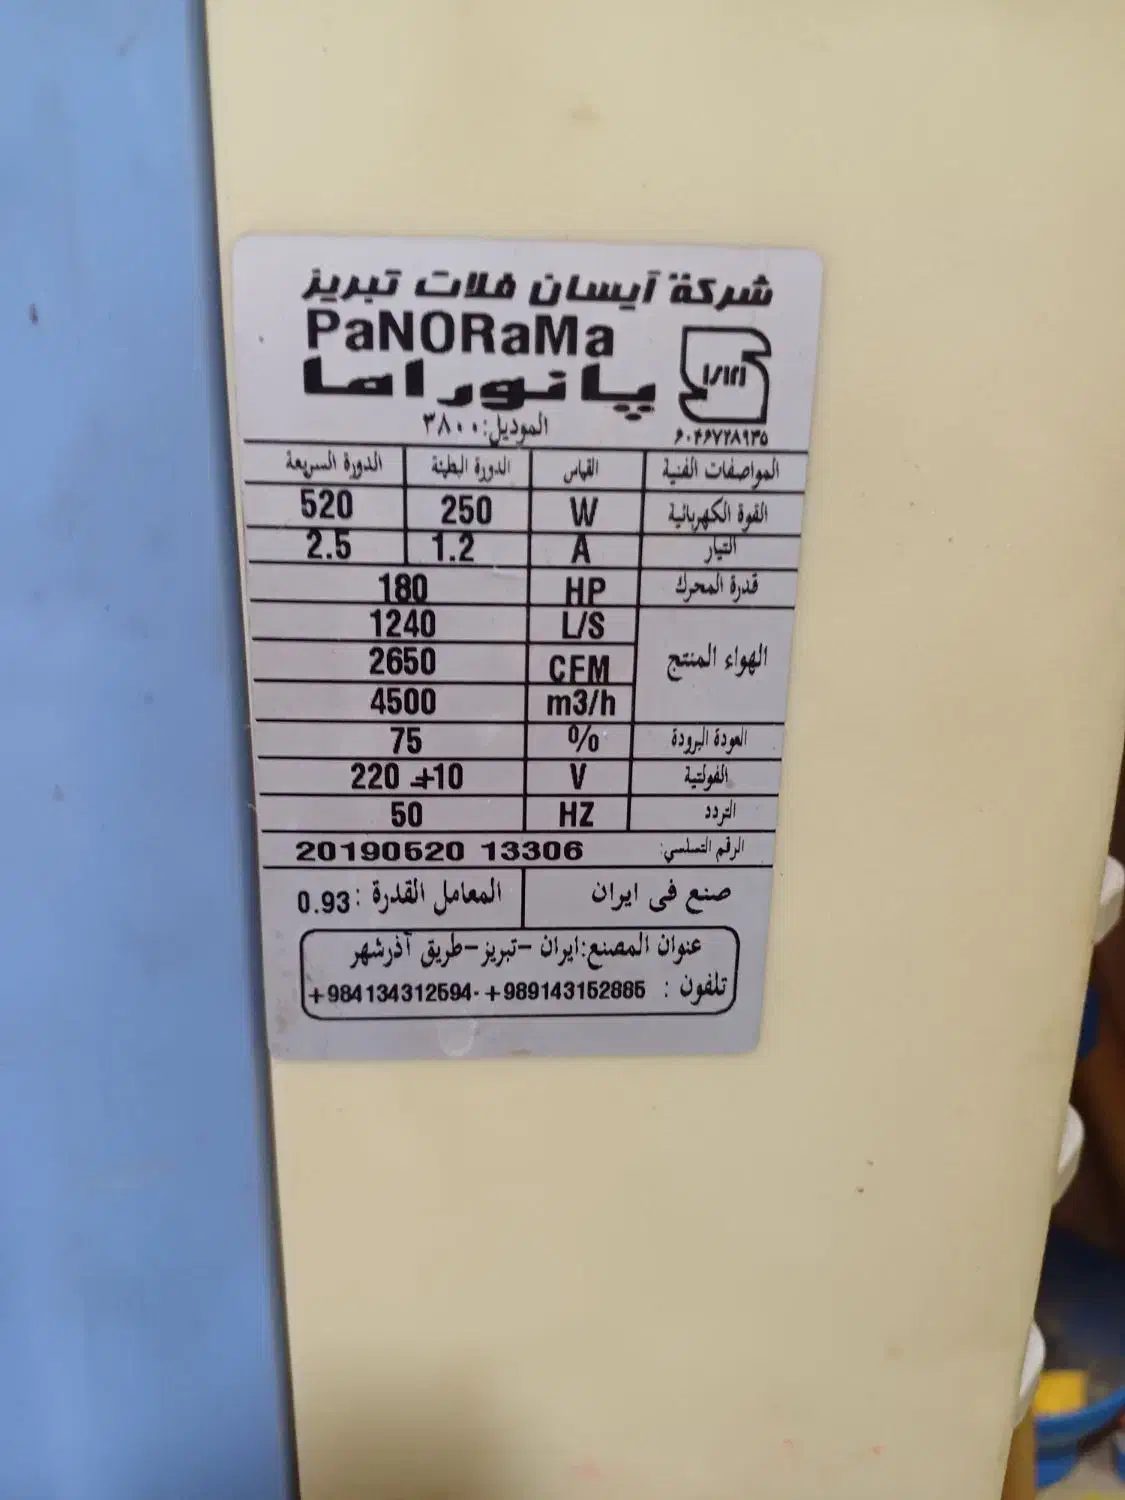 شركة آيسان فلات تبريز
PaNORaMa
پانوراما
الموديل: ٣٨٠٠
ISIRI
۶۰۴۶۷۲۸۹۳۵
المواصفات الفنية القياس الدورة البطيئة الدورة السريعة
القوة الكهربائية W 250 520
التيار A 1.2 2.5
قدرة المحرك HP 180
الهواء المنتج L/S 1240
CFM 2650
m3/h 4500
العودة البرودة % 75
الفولتية V 220 +10
التردد HZ 50
الرقم التسلسي: 20190520 13306
صنع فى ايران المعامل القدرة : 0.93
عنوان المصنع:ايران -تبريز-طريق آذرشهر
تلفون : +984134312594- +989143152885